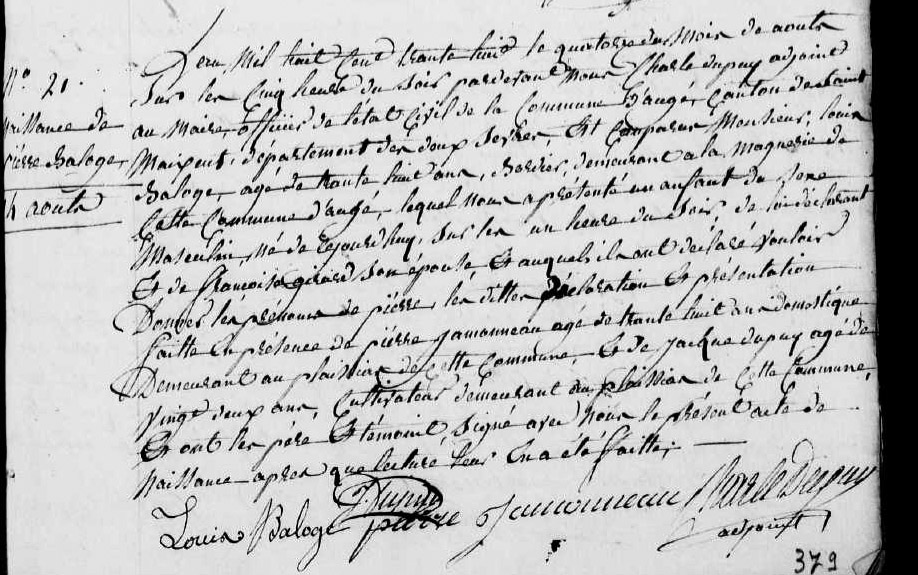 N° 21.
Naissance de
pierre Baloge,
14 aouts
L'an Mil huit Cent trante huit le quatorze du Mois de aouts
Sur les Cinq heure du Soir pardevant Nous Charle dupuy adjoint
au Maire, officiis de letat Civil de la Commune D'augé, Canton de Saint
Maixent, département des deux Sevres, Et Comparus Monsieur, louis
Baloge, agé de trante huit ans, Bordier, demeurant a la Magnerie de
Cette Commune d'augé, lequel Nous a présenté un anfant du Sexe
Masculin, Né de cejourdhuy, Sur les un heure du Soir, de lui déclarant
Et de francoise girard Son épouse Et auquels ils ont déclaré Vouloir
Donner les prénoms de piérre les dittes déclaration Et présentation
faitte En présence de piérre Jamonneau agé de trante huit ans domestique
Demeurant au plaissias de Cette Commune, Et de Jacque dupuy agé de
Vingt deux ans, Cultivateur demeurant au plaissias de Cette Commune,
Et ont les pére Et témoint, Signé avec Nous le présent acte de
Naissance apres que lecture leur En a été faitte;
Louis Baloge Dupuy pierre Jamonneau Charle Dupuy
adjoint
379